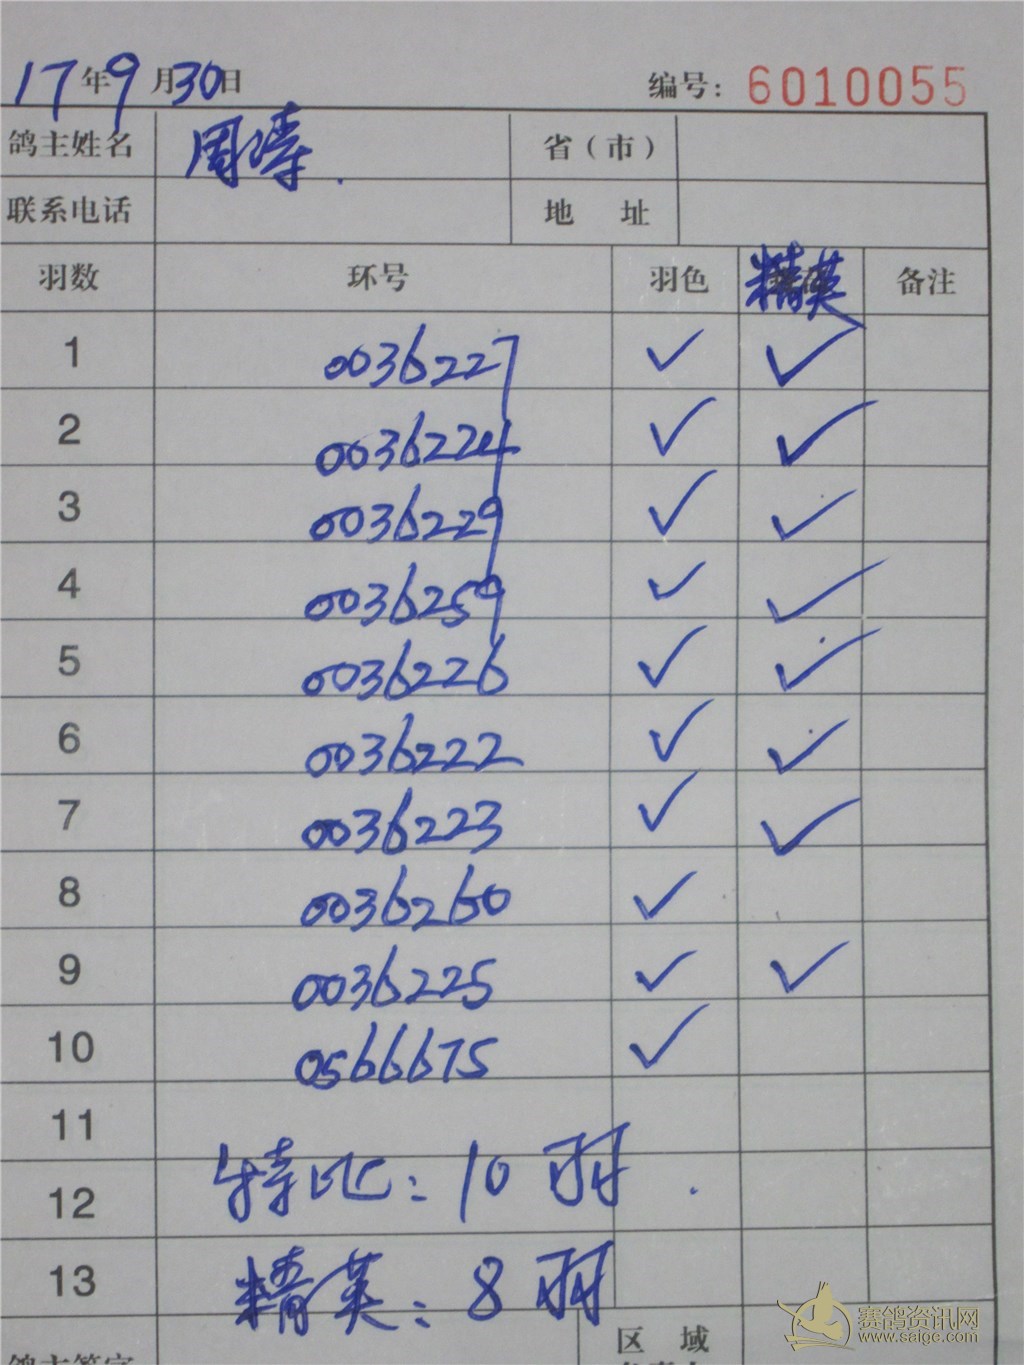 17年9月30日 编号: 6010055
鸽主姓名 周涛. 省(市)
联系电话 地 址
羽数 环号 羽色 精英 备注
1 0036227 ✓ ✓
2 0036224 ✓ ✓
3 0036229 ✓ ✓
4 0036259 ✓ ✓
5 0036226 ✓ ✓
6 0036222 ✓ ✓
7 0036223 ✓ ✓
8 0036260 ✓
9 0036225 ✓ ✓
10 0566675 ✓
11
12 特比: 10 羽.
13 精英: 8 羽
区 域
赛鸽资讯网
www.saige.com